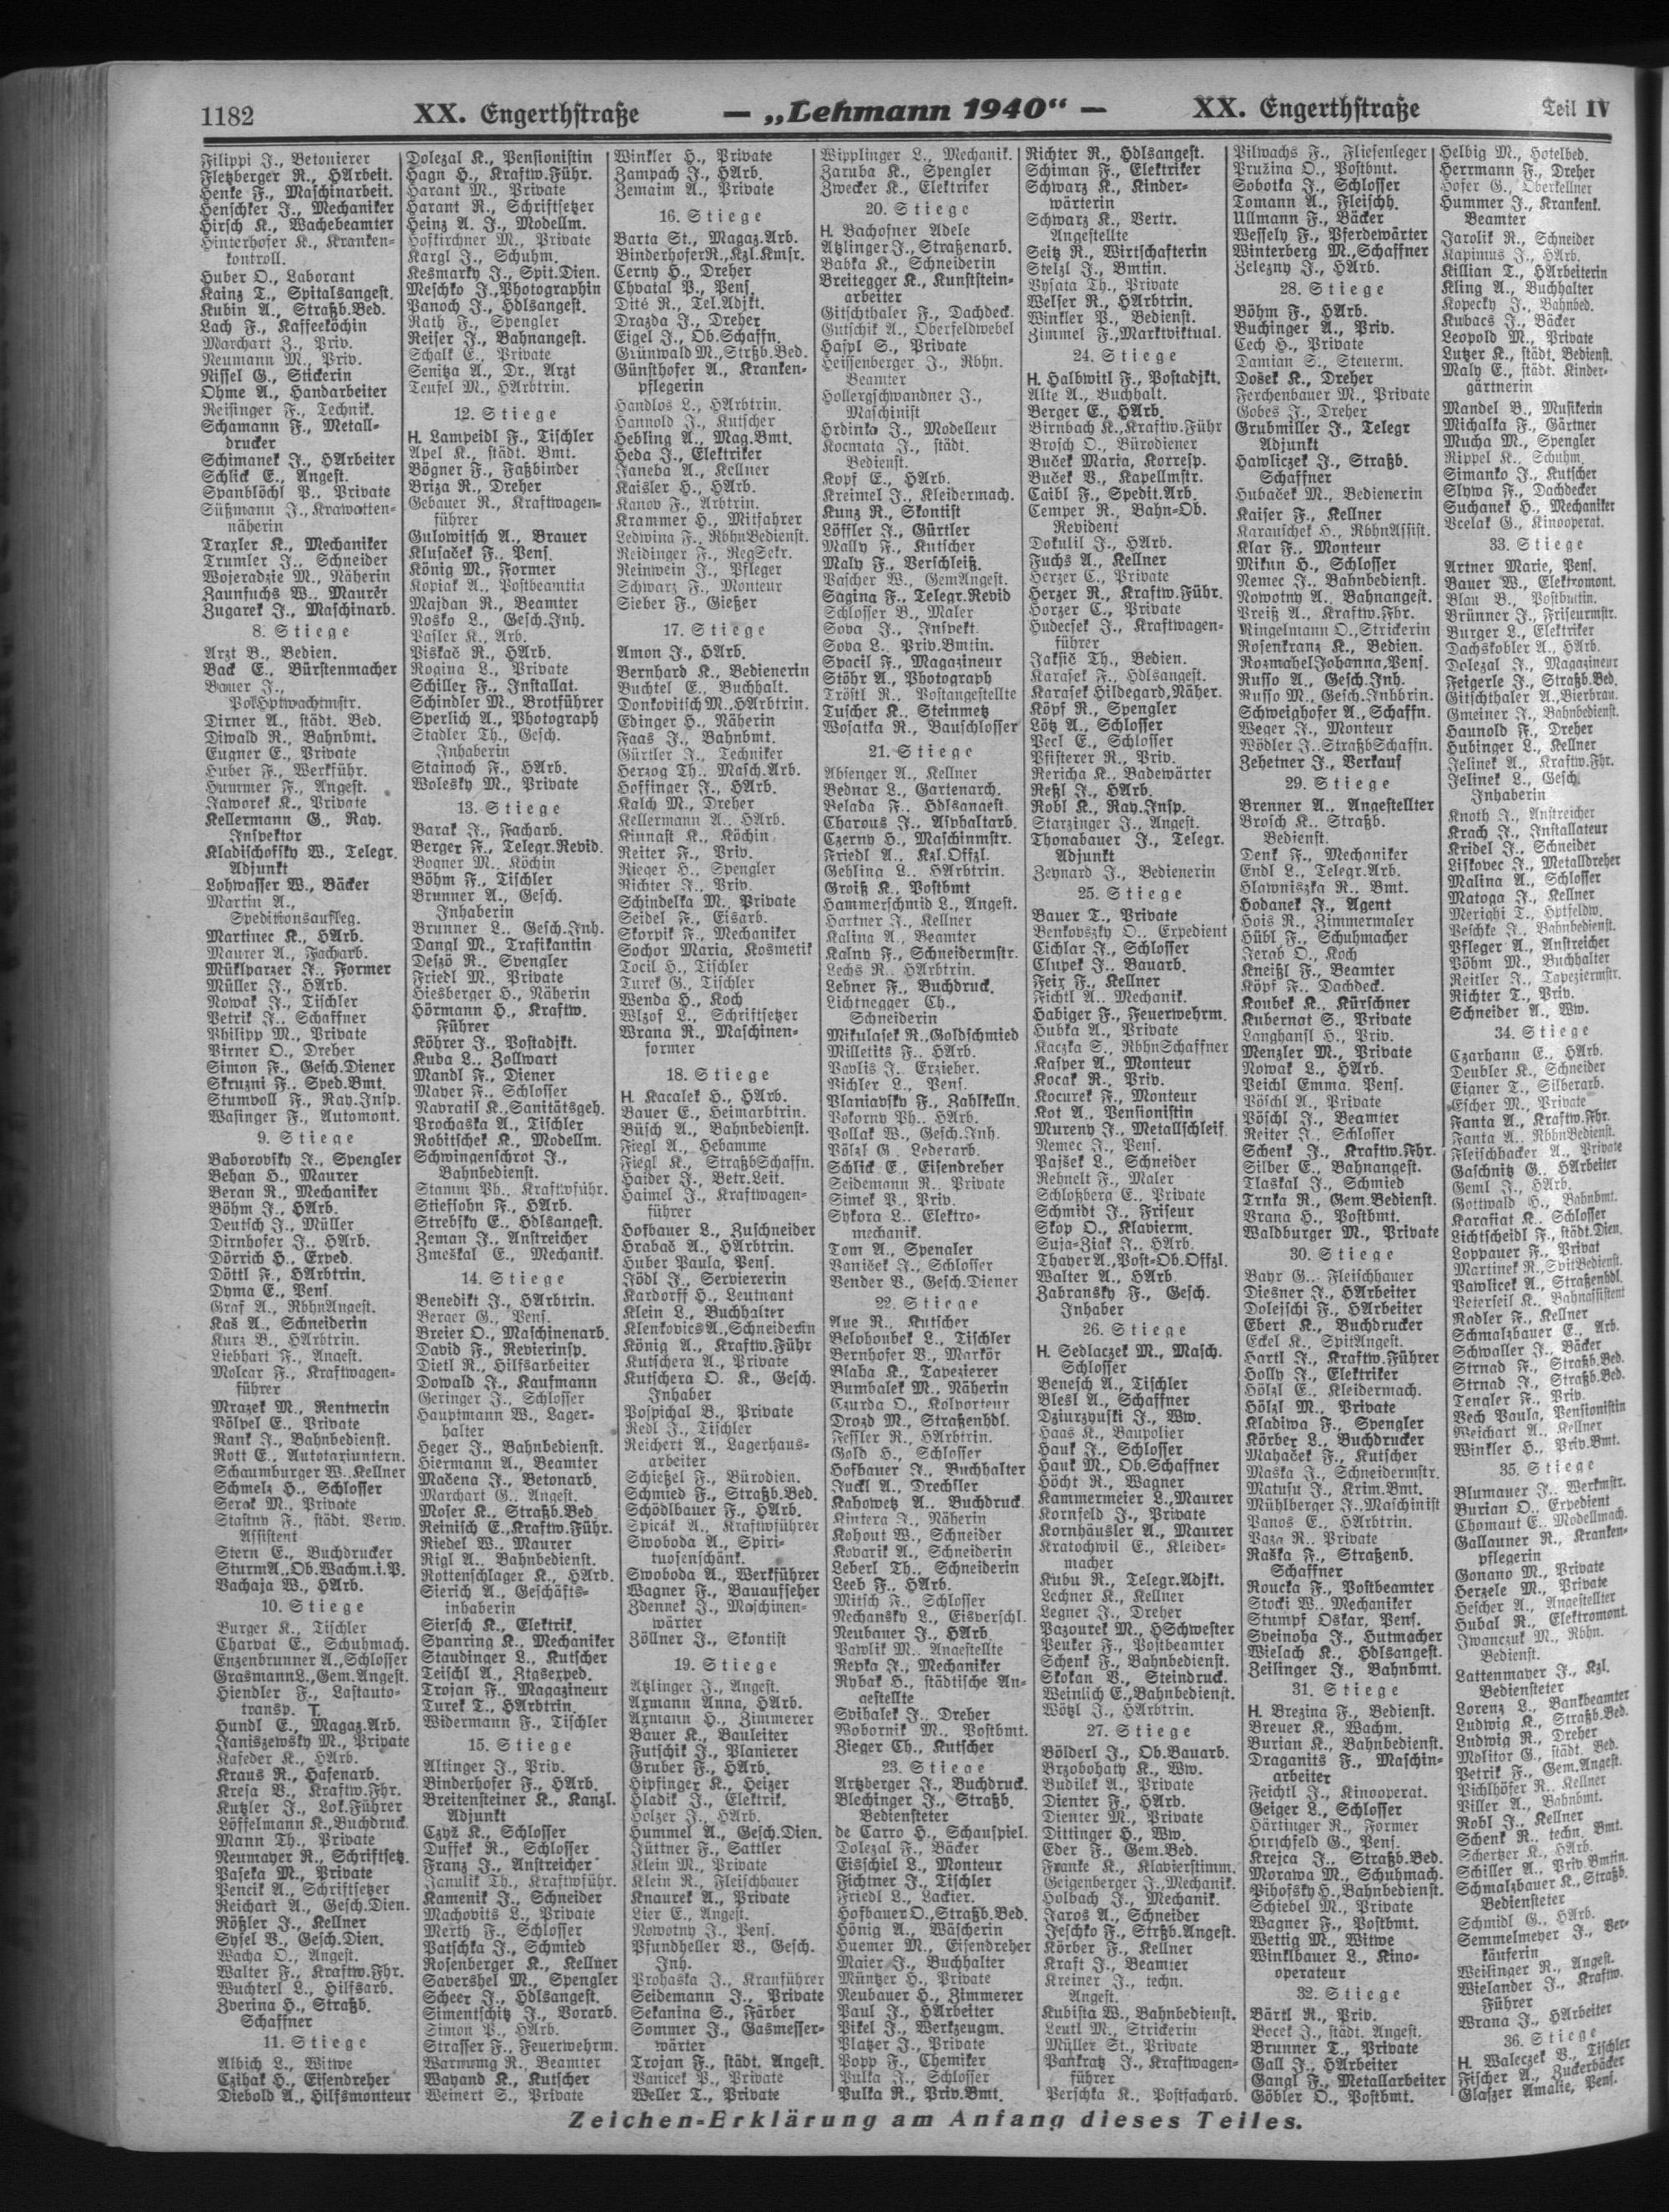 1182
XX. Engerthstraße
— „Lehmann 1940“ —
XX. Engerthstraße
Teil IV
Filippi J., Betonierer
Fletzberger R., HArbeit.
Henke F., Maschinarbeit.
Henschker J., Mechaniker
Hirsch K., Wachebeamter
Hinterhofer K., Kranken-
kontroll.
Huber O., Laborant
Kainz T., Spitalsangest.
Kubin A., Straßb.Bed.
Lach F., Kaffeeköchin
Marchart Z., Priv.
Neumann M., Priv.
Rissel G., Stickerin
Ohme A., Handarbeiter
Reisinger F., Technik.
Schamann F., Metall-
drucker
Schimanek J., HArbeiter
Schlick E., Angest.
Spanblöchl P., Private
Süßmann J., Krawatten-
näherin
Traxler K., Mechaniker
Trumler J., Schneider
Wojeradzie M., Näherin
Zaunfuchs W., Maurer
Zugarek J., Maschinarb.
8. Stiege
Arzt B., Bedien.
Back E., Bürstenmacher
Bauer J.,
PolHptwachtmstr.
Dirner A., städt. Bed.
Diwald R., Bahnbmt.
Eugner E., Private
Huber F., Werkführ.
Hummer F., Angest.
Jaworek K., Private
Kellermann G., Ray.
Inspektor
Kladischofsky W., Telegr.
Adjunkt
Lohwasser W., Bäcker
Martin A.,
Speditionsaufleg.
Martinec K., HArb.
Maurer A., Facharb.
Müklparzer J., Former
Müller J., HArb.
Nowak J., Tischler
Petrik J., Schaffner
Philipp M., Private
Pirner O., Dreher
Simon F., Gesch.Diener
Skruzni F., Sped.Bmt.
Stumvoll F., Ray.Insp.
Wasinger F., Automont.
9. Stiege
Baborovsky J., Spengler
Behan H., Maurer
Beran R., Mechaniker
Böhm J., HArb.
Deutsch J., Müller
Dirnhofer J., HArb.
Dörrich H., Exped.
Döttl F., HArbtrin.
Dyma E., Pens.
Graf A., RbhnAngest.
Kas A., Schneiderin
Kurz B., HArbtrin.
Liebhart F., Angest.
Molcar F., Kraftwagen-
führer
Mrazek M., Rentnerin
Pölpel E., Private
Rank J., Bahnbedienst.
Rott E., Autotaxiuntern.
Schaumburger W., Kellner
Schmelz H., Schlosser
Serak M., Private
Stastny F., städt. Verw.
Assistent
Stern E., Buchdrucker
Sturm A., Ob.Wachm.i.P.
Vachaja W., HArb.
10. Stiege
Burger K., Tischler
Charvat E., Schuhmach.
Enzenbrunner A., Schlosser
Grasmann L., Gem.Angest.
Hiendler F., Lastauto-
transp. T.
Hundl E., Magaz.Arb.
Janiszewsky M., Private
Kafeder K., HArb.
Kraus R., Hafenarb.
Kresa V., Kraftw.Fhr.
Kutzler J., Lok.Führer
Löffelmann K., Buchdruck.
Mann Th., Private
Neumayer R., Schriftsetz.
Paseka M., Private
Pencik A., Schriftsetzer
Reichart A., Gesch.Dien.
Rößler J., Kellner
Sysel V., Gesch.Dien.
Wacha O., Angest.
Walter F., Kraftw.Fhr.
Wuchterl L., Hilfsarb.
Zverina H., Straßb.
Schaffner
11. Stiege
Albich L., Witwe
Czihak H., Eisendreher
Diebold A., Hilfsmonteur
Dolezal K., Pensionistin
Hagn H., Kraftw.Führ.
Harant M., Private
Harant R., Schriftsetzer
Heinz A. J., Modellm.
Hofkirchner M., Private
Kargl J., Schuhm.
Kesmarky J., Spit.Dien.
Meschko J., Photographin
Panoch J., Hdlsangest.
Rath F., Spengler
Reiser J., Bahnangest.
Schalk E., Private
Senitza A., Dr., Arzt
Teufel M., HArbtrin.
12. Stiege
H. Lampeidl F., Tischler
Apel K., städt. Bmt.
Bögner F., Faßbinder
Briza R., Dreher
Gebauer R., Kraftwagen-
führer
Gulowitsch A., Brauer
Klusaček F., Pens.
König M., Former
Kopiak A., Postbeamtin
Majdan R., Beamter
Nosko L., Gesch.Inh.
Pasler K., Arb.
Piskač R., HArb.
Rogina L., Private
Schiller F., Installat.
Schindler M., Brotführer
Sperlich A., Photograph
Stadler Th., Gesch.
Inhaberin
Stainoch F., HArb.
Wolesky M., Private
13. Stiege
Barak J., Facharb.
Berger F., Telegr.Revid.
Bogner M., Köchin
Böhm F., Tischler
Brunner A., Gesch.
Inhaberin
Brunner L., Gesch.Inh.
Dangl M., Trafikantin
Dejzö R., Spengler
Friedl M., Private
Hiesberger H., Näherin
Hörmann H., Kraftw.
Führer
Köhrer J., Postadjkt.
Kuba L., Zollwart
Mandl F., Diener
Mayer F., Schlosser
Navratil K., Sanitätsgeh.
Prochaska A., Tischler
Robitschek K., Modellm.
Schwingenschrot J.,
Bahnbedienst.
Stamm Ph., Kraftwführ.
Stiefsohn F., HArb.
Strebsky E., Hdlsangest.
Zeman J., Anstreicher
Zmeskal E., Mechanik.
14. Stiege
Benedikt J., HArbtrin.
Berger G., Pens.
Breier O., Maschinenarb.
David F., Revierinsp.
Dietl R., Hilfsarbeiter
Dowald J., Kaufmann
Geringer J., Schlosser
Hauptmann W., Lager-
halter
Heger J., Bahnbedienst.
Hiermann A., Beamter
Mačena J., Betonarb.
Marchart G., Angest.
Moser K., Straßb.Bed.
Reinisch E., Kraftw.Führ.
Riedel W., Maurer
Rigl A., Bahnbedienst.
Rottenschlager K., HArb.
Sierich A., Geschäfts-
inhaberin
Siersch K., Elektrik.
Spanring K., Mechaniker
Staudinger L., Kutscher
Teischl A., Ztgsexped.
Trojan F., Magazineur
Turek T., HArbtrin.
Widermann F., Tischler
15. Stiege
Altinger J., Priv.
Binderhofer F., HArb.
Breitensteiner K., Kanzl.
Adjunkt
Czyž K., Schlosser
Duffek R., Schlosser
Franz J., Anstreicher
Janulik Th., Kraftwführ.
Kamenik J., Schneider
Machovits L., Private
Merth F., Schlosser
Patschka J., Schmied
Rosenberger K., Kellner
Savershel M., Spengler
Scheer J., Hdlsangest.
Simentschitz J., Vorarb.
Simon P., HArb.
Strasser F., Feuerwehrm.
Warmung R., Beamter
Wayand K., Kutscher
Weinert S., Private
Winkler H., Private
Zampach J., HArb.
Zemaim A., Private
16. Stiege
Barta St., Magaz.Arb.
Binderhofer R., Kzl.Kmsr.
Cerny H., Dreher
Chvatal P., Pens.
Dité R., Tel.Adjkt.
Drazda J., Dreher
Eigel J., Ob.Schaffn.
Grünwald M., Strßb.Bed.
Günsthofer A., Kranken-
pflegerin
Handlos L., HArbtrin.
Hannold J., Kutscher
Hebling A., Mag.Bmt.
Heda J., Elektriker
Janeba A., Kellner
Kaisler H., HArb.
Kanov F., Arbtrin.
Krammer H., Mitfahrer
Ledwina F., RbhnBedienst.
Reidinger F., RegSekr.
Reinwein J., Pfleger
Schwarz F., Monteur
Sieber F., Gießer
17. Stiege
Amon J., HArb.
Bernhard K., Bedienerin
Buchtel E., Buchhalt.
Donkovitsch M., HArbtrin.
Edinger H., Näherin
Faas J., Bahnbmt.
Gürtler J., Techniker
Herzog Th., Masch.Arb.
Hoffinger J., HArb.
Kalch M., Dreher
Kellermann A., HArb.
Kinnast K., Köchin
Reiter F., Priv.
Rieger H., Spengler
Richter J., Priv.
Schindelka M., Private
Seidel F., Eisarb.
Skorpik F., Mechaniker
Sochor Maria, Kosmetik
Tocil H., Tischler
Turek G., Tischler
Wenda H., Koch
Wlzof L., Schriftsetzer
Wrana R., Maschinen-
former
18. Stiege
H. Kacalek H., HArb.
Bauer E., Heimarbtrin.
Büsch A., Bahnbedienst.
Fiegl A., Hebamme
Fiegl K., StraßbSchaffn.
Haider J., Betr.Leit.
Haimel J., Kraftwagen-
führer
Hofbauer L., Zuschneider
Hrabač A., HArbtrin.
Huber Paula, Pens.
Jödl J., Serviererin
Kardorff H., Leutnant
Klein L., Buchhalter
Klenkovics A., Schneiderin
König A., Kraftw.Führ
Kutschera A., Private
Kutschera O. K., Gesch.
Inhaber
Pospichal B., Private
Redl J., Tischler
Reichert A., Lagerhaus-
arbeiter
Schießel F., Bürodien.
Schmied F., Straßb.Bed.
Schödlbauer F., HArb.
Spicak A., Kraftwführer
Swoboda A., Spiri-
tuosenschänk.
Swoboda A., Werkführer
Wagner F., Bauaufseher
Zdennek J., Maschinen-
wärter
Zöllner J., Skontist
19. Stiege
Atzlinger J., Angest.
Axmann Anna, HArb.
Axmann H., Zimmerer
Bauer K., Bauleiter
Futschik J., Planierer
Gruber F., HArb.
Hipfinger K., Heizer
Hladik J., Elektrik.
Holzer J., HArb.
Hummel A., Gesch.Dien.
Jüttner F., Sattler
Klein M., Private
Klein R., Fleischhauer
Knaurek A., Private
Lier E., Angest.
Nowotny J., Pens.
Pfundheller V., Gesch.
Inh.
Prohaska J., Kranführer
Seidemann J., Private
Sekanina S., Färber
Sommer J., Gasmesser-
wärter
Trojan F., städt. Angest.
Vanicek P., Private
Weller T., Private
Wipplinger L., Mechanik.
Zaruba K., Spengler
Zwecker K., Elektriker
20. Stiege
H. Bachofner Adele
Atzlinger J., Straßenarb.
Babka K., Schneiderin
Breitegger K., Kunststein-
arbeiter
Gitschthaler F., Dachdeck.
Gutschik A., Oberfeldwebel
Haspl S., Private
Heissenberger J., Rbhn.
Beamter
Hollergschwandner J.,
Maschinist
Hrdinka J., Modelleur
Kocmata J., städt.
Bedienst.
Kopf E., HArb.
Kreimel J., Kleidermach.
Kunz R., Skontist
Löffler J., Gürtler
Mally F., Kutscher
Maly F., Verschleiß.
Pascher W., GemAngest.
Sagina F., Telegr.Revid
Schlosser B., Maler
Sova J., Inspekt.
Sova L., Priv.Bmtin.
Spacil F., Magazineur
Stöhr A., Photograph
Tröstl R., Postangestellte
Tuscher K., Steinmetz
Wosatka R., Bauschlosser
21. Stiege
Absenger A., Kellner
Bednar L., Gartenarch.
Belada F., Hdlsangest.
Charous J., Asphaltarb.
Czerny H., Maschinmstr.
Friedl A., Kzl.Offzl.
Gebling L., HArbtrin.
Groiß K., Postbmt
Hammerschmid L., Angest.
Hartner J., Kellner
Kalina A., Beamter
Kalny F., Schneidermstr.
Lechs R., HArbtrin.
Lehner F., Buchdruck.
Lichtnegger Ch.,
Schneiderin
Mikulasek R., Goldschmied
Milletits F., HArb.
Pavlis J., Erzieher.
Pichler L., Pens.
Planiavsky F., Zahlkelln.
Pokorny Ph., HArb.
Pollak W., Gesch.Inh.
Pölzl G., Lederarb.
Schlick E., Eisendreher
Seidemann R., Private
Simek V., Priv.
Sykora L., Elektro-
mechanik.
Tom A., Spengler
Vaniček J., Schlosser
Vender V., Gesch.Diener
22. Stiege
Aue R., Kutscher
Belohoubek L., Tischler
Bernhofer V., Markör
Blaha K., Tapezierer
Bumbalek M., Näherin
Czurda O., Kolporteur
Drozd M., Straßenhdl.
Fessler R., HArbtrin.
Gold H., Schlosser
Hofbauer J., Buchhalter
Juckl A., Drechsler
Kahowetz A., Buchdruck
Kintera J., Näherin
Kohout W., Schneider
Kovarik A., Schneiderin
Leberl Th., Schneiderin
Leeb F., HArb.
Mitsch F., Schlosser
Nechansky L., Eisverschl.
Neubauer J., HArb.
Pawlik M., Angestellte
Repka J., Mechaniker
Rybak H., städtische An-
gestellte
Svihalek J., Dreher
Wobornik M., Postbmt.
Zieger Ch., Kutscher
23. Stiege
Artzberger J., Buchdruck.
Blechinger J., Straßb.
Bediensteter
de Carro H., Schauspiel.
Dolezal F., Bäcker
Eisschiel L., Monteur
Fichtner J., Tischler
Friedl L., Lackier.
Hofbauer O., Straßb.Bed.
Hönig A., Wäscherin
Huemer M., Eisendreher
Maier J., Buchhalter
Müntzer H., Private
Neubauer H., Zimmerer
Paul J., HArbeiter
Pikel J., Werkzeugm.
Platzer J., Private
Popp F., Chemiker
Pulka J., Schlosser
Pulka R., Priv.Bmt.
Richter R., Hdlsangest.
Schiman F., Elektriker
Schwarz K., Kinder-
wärterin
Schwarz K., Vertr.
Angestellte
Seitz R., Wirtschafterin
Stelzl J., Bmtin.
Vysata Th., Private
Welser R., HArbtrin.
Winkler P., Bedienst.
Zimmel F., Marktviktual.
24. Stiege
H. Halbwitl F., Postadjkt.
Alte A., Buchhalt.
Berger E., HArb.
Birnbach K., Kraftw.Führ
Brosch O., Bürodiener
Buček Maria, Korresp.
Buček V., Kapellmstr.
Caibl F., Spedit.Arb.
Cemper R., Bahn-Ob.
Revident
Dokulil J., HArb.
Fuchs A., Kellner
Herzer C., Private
Herzer R., Kraftw.Führ.
Horzer C., Private
Hudecsek J., Kraftwagen-
führer
Jaksič Th., Bedien.
Karasek F., Hdlsangest.
Karasek Hildegard, Näher.
Köpf R., Spengler
Lötz A., Schlosser
Pecl E., Schlosser
Pfisterer R., Priv.
Rericha K., Badewärter
Reßl J., HArb.
Robl K., Ray.Insp.
Starzinger J., Angest.
Thonabauer J., Telegr.
Adjunkt
Zeynard J., Bedienerin
25. Stiege
Bauer T., Private
Benkovszky O., Expedient
Cichlar J., Schlosser
Clupek J., Bauarb.
Feix F., Kellner
Fichtl A., Mechanik.
Habiger F., Feuerwehrm.
Hubka A., Private
Kaczka S., RbhnSchaffner
Kasper A., Monteur
Kocak R., Priv.
Kocurek F., Monteur
Kot A., Pensionistin
Mureny J., Metallschleif.
Nemec J., Pens.
Pajsek L., Schneider
Rehnelt F., Maler
Schloßberg E., Private
Schmidt J., Friseur
Skop O., Klavierm.
Suja-Ziak J., HArb.
Thayer A., Post-Ob.Offzl.
Walter A., HArb.
Zabransky F., Gesch.
Inhaber
26. Stiege
H. Sedlaczek M., Masch.
Schlosser
Benesch A., Tischler
Blesl A., Schaffner
Dziurzynski J., Ww.
Haas K., Baupolier
Hauk J., Schlosser
Hauk M., Ob.Schaffner
Höcht R., Wagner
Kammermeier L., Maurer
Kornfeld J., Private
Kornhäusler A., Maurer
Kratochwil E., Kleider-
macher
Kubu R., Telegr.Adjkt.
Lechner K., Kellner
Legner J., Dreher
Pazourek M., HSchwester
Peuker F., Postbeamter
Schenk F., Bahnbedienst.
Skokan V., Steindruck.
Weinlich E., Bahnbedienst.
Wötzl J., HArbtrin.
27. Stiege
Bölderl J., Ob.Bauarb.
Brzobohaty K., Ww.
Budilek A., Private
Dienter F., HArb.
Dienter M., Private
Dittinger H., Ww.
Eder F., Gem.Bed.
Franke K., Klavierstimm.
Geigenberger J., Mechanik.
Holbach J., Mechanik.
Jaros A., Schneider
Jeschko F., Strßb.Angest.
Körber F., Kellner
Kraft J., Beamter
Kreiner J., techn.
Angest.
Kubista W., Bahnbedienst.
Leutl M., Strickerin
Müller St., Private
Pankratz J., Kraftwagen-
führer
Perschka K., Postfacharb.
Pilwachs F., Fliesenleger
Pružina O., Postbmt.
Sobotka J., Schlosser
Tomann A., Fleischh.
Ullmann F., Bäcker
Wessely F., Pferdewärter
Winterberg M., Schaffner
Zelezny J., HArb.
28. Stiege
Böhm F., HArb.
Buchinger A., Priv.
Cech H., Private
Damian S., Steuerm.
Dosek K., Dreher
Ferchenbauer M., Private
Gobes J., Dreher
Grubmiller J., Telegr
Adjunkt
Hawliczek J., Straßb.
Schaffner
Hubaček M., Bedienerin
Kaiser F., Kellner
Karauschek H., RbhnAssist.
Klar F., Monteur
Mikun H., Schlosser
Nemec J., Bahnbedienst.
Nowotny A., Bahnangest.
Preiß A., Kraftw.Fhr.
Ringelmann O., Strickerin
Rosenkranz K., Bedien.
Rozmahel Johanna, Pens.
Russo A., Gesch.Inh.
Russo M., Gesch.Inhbrin.
Schweighofer A., Schaffn.
Weger J., Monteur
Wödler J., StraßbSchaffn.
Zehetner J., Verkauf
29. Stiege
Brenner A., Angestellter
Brosch K., Straßb.
Bedienst.
Denk F., Mechaniker
Endl L., Telegr.Arb.
Hlawniszka R., Bmt.
Hodanek J., Agent
Hois R., Zimmermaler
Hübl F., Schuhmacher
Jerab O., Koch
Kneißl F., Beamter
Köpf F., Dachdeck.
Koubek K., Kürschner
Kubernat S., Private
Langhansl H., Priv.
Menzler M., Private
Nowak L., HArb.
Peichl Emma, Pens.
Pöschl A., Private
Pöschl J., Beamter
Reiter J., Schlosser
Schenk J., Kraftw.Fhr.
Silber E., Bahnangest.
Tlaskal J., Schmied
Trnka R., Gem.Bedienst.
Vrana H., Postbmt.
Waldburger M., Private
30. Stiege
Bayr G., Fleischhauer
Diesner J., HArbeiter
Dolejschi F., HArbeiter
Ebert K., Buchdrucker
Eckel K., SpitAngest.
Hartl J., Kraftw.Führer
Holly J., Elektriker
Hölzl E., Kleidermach.
Hölzl M., Private
Kladiwa F., Spengler
Körber L., Buchdrucker
Mahaček F., Kutscher
Maska J., Schneidermstr.
Matusu J., Krim.Bmt.
Mühlberger J., Maschinist
Panos E., HArbtrin.
Paza R., Private
Raska F., Straßenb.
Schaffner
Roucka F., Postbeamter
Stocki W., Mechaniker
Stumpf Oskar, Pens.
Sveinoha J., Hutmacher
Wielach K., Hdlsangest.
Zeilinger J., Bahnbmt.
31. Stiege
H. Brezina F., Bedienst.
Breuer K., Wachm.
Burian K., Bahnbedienst.
Draganits F., Maschin-
arbeiter
Feichtl J., Kinooperat.
Geiger L., Schlosser
Härtinger R., Former
Hirschfeld G., Pens.
Krejca J., Straßb.Bed.
Morawa M., Schuhmach.
Pihofsky H., Bahnbedienst.
Schiebel M., Private
Wagner F., Postbmt.
Wettig M., Witwe
Winklbauer L., Kino-
operateur
32. Stiege
Bärtl R., Priv.
Bocek J., städt. Angest.
Brunner T., Private
Gall J., HArbeiter
Gangl F., Metallarbeiter
Göbler O., Postbmt.
Helbig M., Hotelbed.
Herrmann F., Dreher
Hofer G., Oberkellner
Hummer J., Krankenk.
Beamter
Jarolik R., Schneider
Kapinus J., HArb.
Killian T., HArbeiterin
Kling A., Buchhalter
Kopecky J., Bahnbed.
Kubacs J., Bäcker
Leopold M., Private
Lutzer K., städt. Bedienst.
Maly E., städt. Kinder-
gärtnerin
Mandel B., Musikerin
Michalka F., Gärtner
Mucha M., Spengler
Rippel K., Schuhm.
Simanko J., Kutscher
Slywa F., Dachdecker
Suchanek H., Mechaniker
Vcelak G., Kinooperat.
33. Stiege
Artner Marie, Pens.
Bauer W., Elektromont.
Blau B., Postbmtin.
Brünner J., Friseurmstr.
Burger L., Elektriker
Dachskobler A., HArb.
Dolezal J., Magazineur
Feigerle J., Straßb.Bed.
Gitschthaler A., Bierbrau.
Gmeiner J., Bahnbedienst.
Haunold F., Dreher
Hubinger L., Kellner
Jelinek A., Kraftw.Fhr.
Jelinek L., Gesch.
Inhaberin
Knoth J., Anstreicher
Krach J., Installateur
Kridel J., Schneider
Liskovec J., Metalldreher
Malina A., Schlosser
Matoga J., Kellner
Merighi T., Hptfeldw.
Peschke J., Bahnbedienst.
Pfleger A., Anstreicher
Pöhm M., Buchhalter
Reitler J., Tapeziermstr.
Richter T., Priv.
Schneider A., Ww.
34. Stiege
Czarhann E., HArb.
Deubler K., Schneider
Eigner T., Silberarb.
Escher M., Private
Fanta A., Kraftw.Fhr.
Fanta A., RbhnBedienst.
Fleischhacker A., Private
Gaschnitz G., HArbeiter
Geml J., HArb.
Gottwald H., Bahnbmt.
Karafiat K., Schlosser
Lichtscheidl F., städt.Dien.
Loppauer F., Privat
Martinek R., SpitBedienst.
Pawlicek A., Straßenhdl.
Peterseil K., Bahnassistent
Radler F., Kellner
Schmalzbauer E., Arb.
Schwaller J., Bäcker
Strnad F., Straßb.Bed.
Strnad J., Straßb.Bed.
Tengler F., Priv.
Vech Paula, Pensionistin
Weichart A., Kellner
Winkler H., Priv.Bmt.
35. Stiege
Blumauer J., Werkmstr.
Burian O., Expedient
Chomaut E., Modellmach.
Gallauner R., Kranken-
pflegerin
Gonano M., Private
Herzele M., Private
Hescher A., Angestellter
Hubal R., Elektromont.
Iwanczuk M., Rbhn.
Bedienst.
Lattenmayer J., Kzl.
Bediensteter
Lorenz L., Bankbeamter
Ludwig K., Straßb.Bed.
Ludwig R., Dreher
Molitor G., städt. Bed.
Petrik F., Gem.Angest.
Pichlhöfer R., Kellner
Piller A., Bahnbmt.
Robl J., Kellner
Schenk R., techn. Bmt.
Schertzer K., HArb.
Schiller A., Priv.Bmtin.
Schmalzbauer K., Straßb.
Bediensteter
Schmidl G., HArb.
Semmelmeyer J., Ver-
käuferin
Weilinger R., Angest.
Wielander J., Kraftw.
Führer
Wrana J., HArbeiter
36. Stiege
H. Waleczek V., Tischler
Fischer A., Zuckerbäcker
Glaszer Amalie, Pens.
Zeichen-Erklärung am Anfang dieses Teiles.